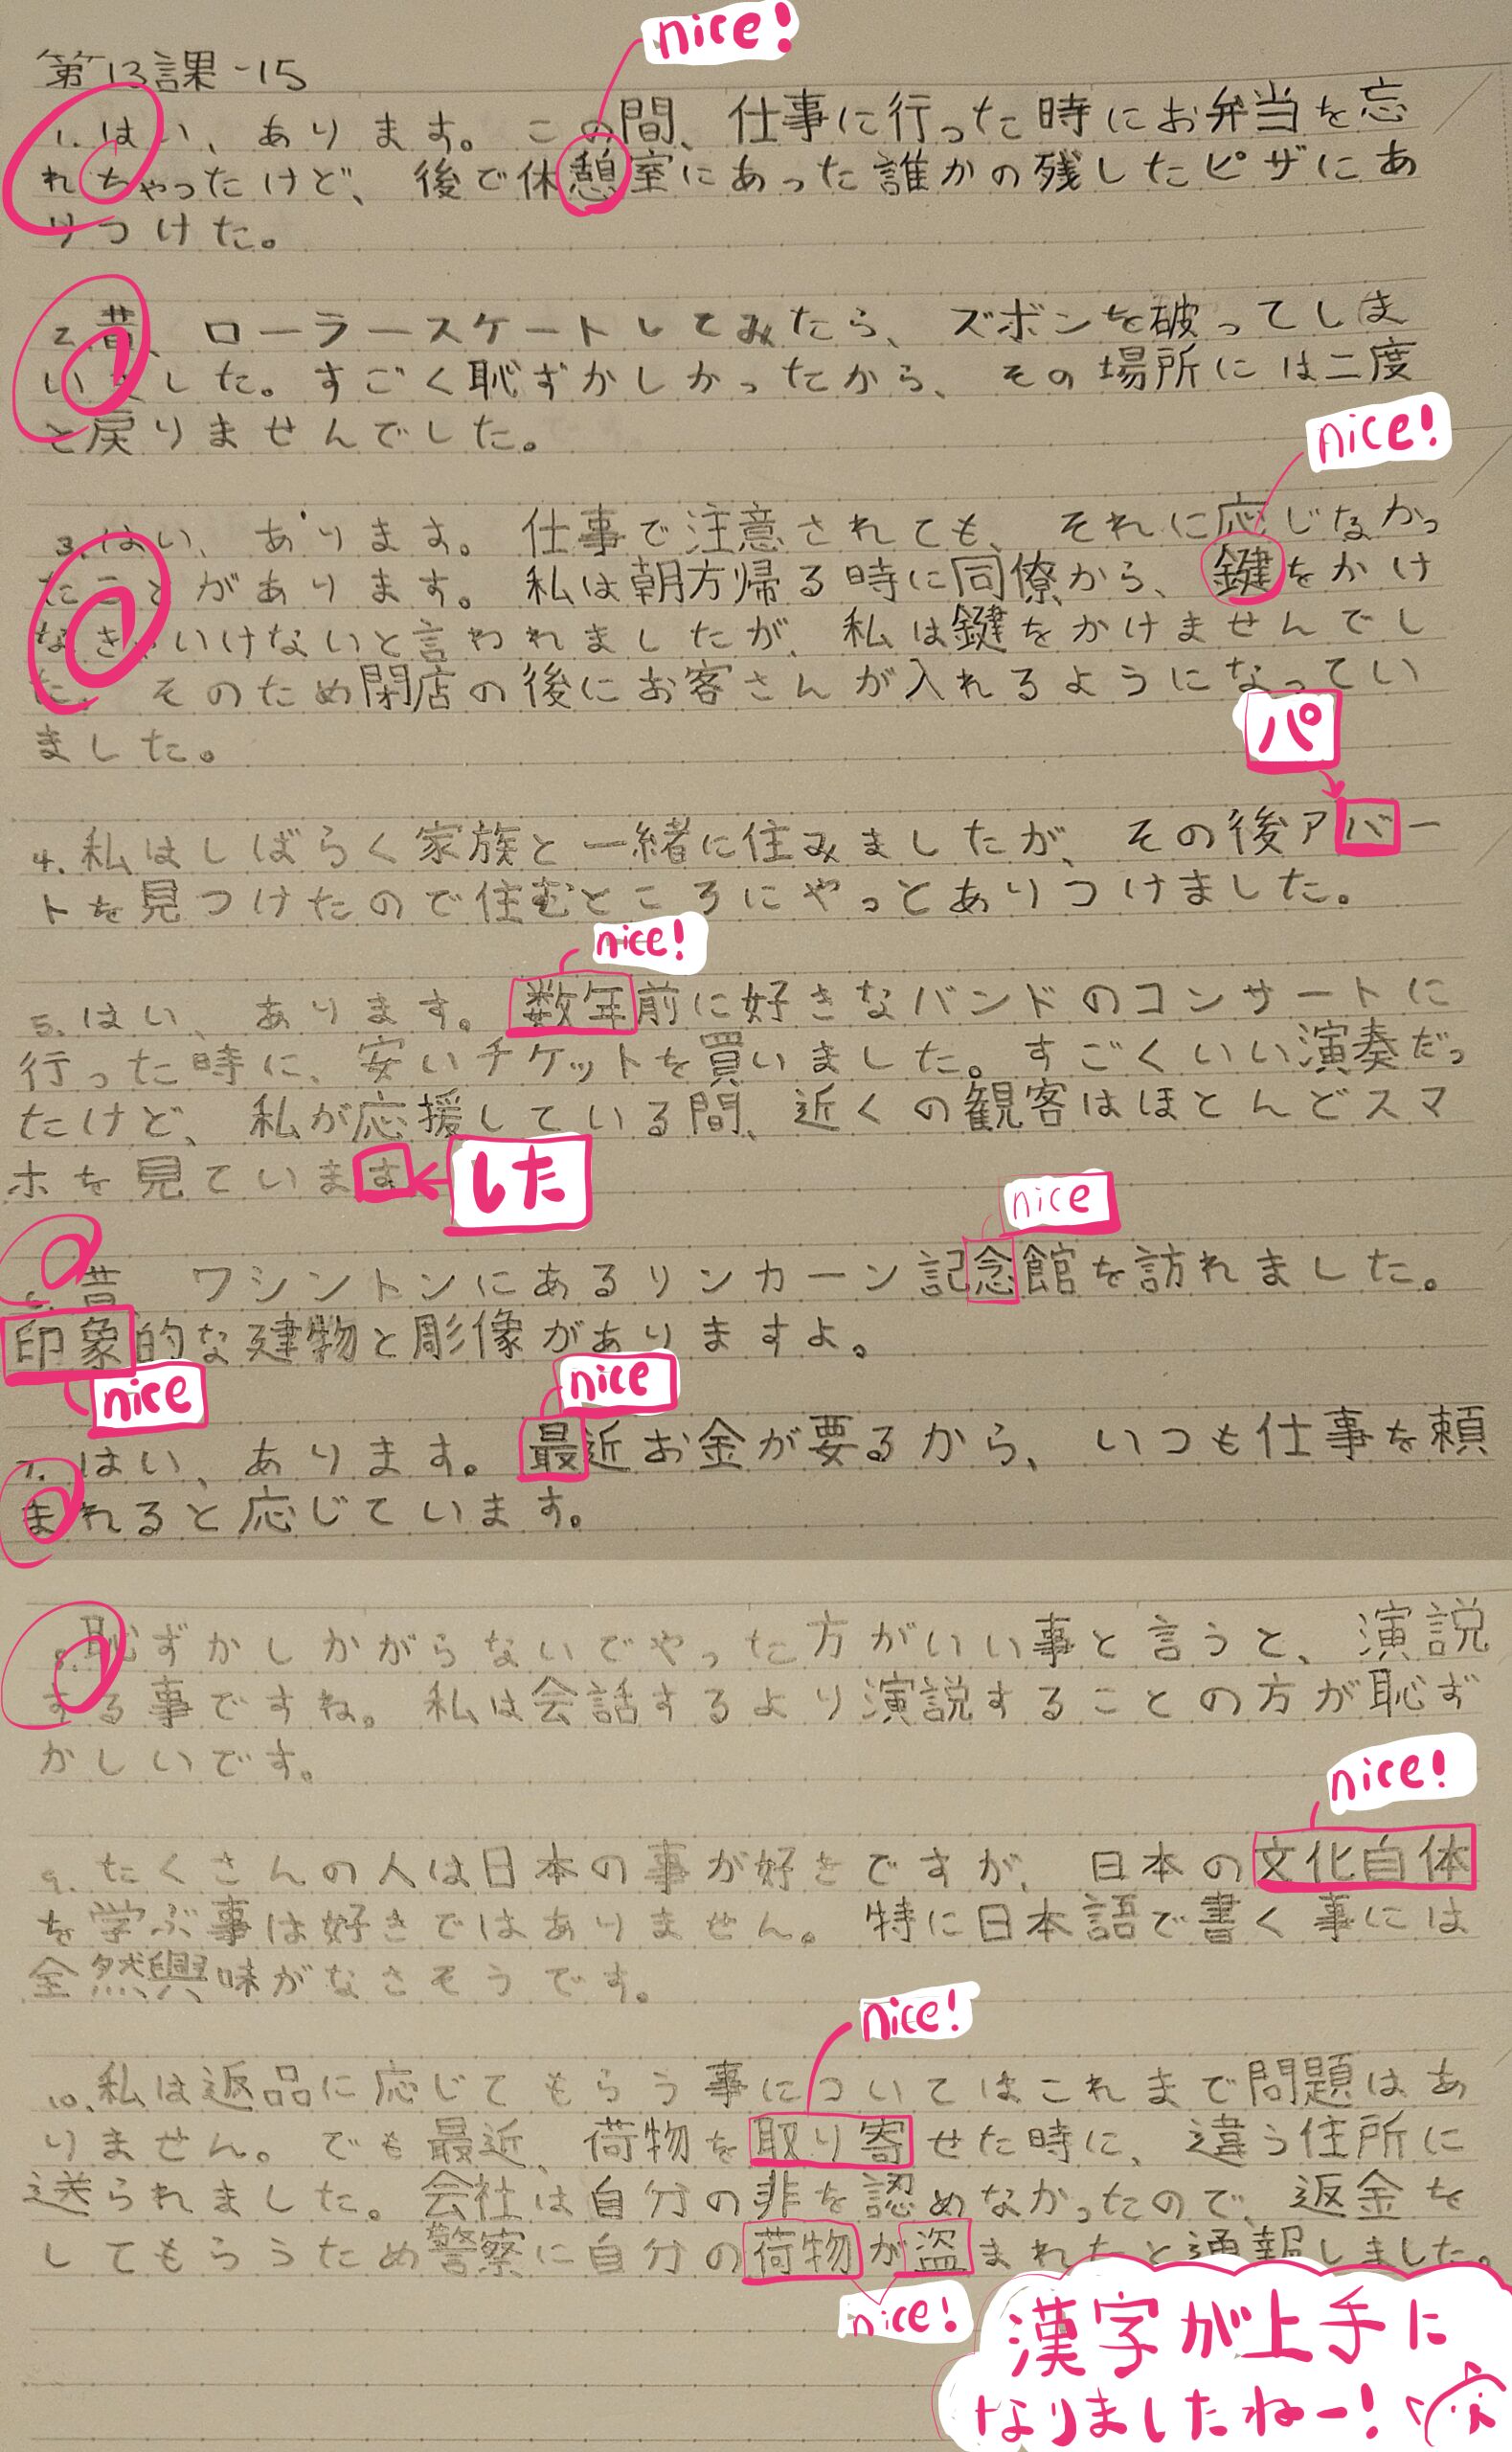 nice!
第13課-15
1. はい、あります。この間、仕事に行った時にお弁当を忘
れちゃったけど、後で休憩室にあった誰かの残したピザにあ
りつけた。
2. 昔、ローラースケートしてみたら、ズボンを破ってしま
いました。すごく恥ずかしかったから、その場所には二度
と戻りませんでした。
nice!
3. はい、あります。仕事で注意されても、それに応じなかっ
たことがあります。私は朝方帰る時に同僚から、鍵をかけ
なきゃいけないと言われましたが、私は鍵をかけませんでし
た。そのため閉店の後にお客さんが入れるようになってい
ました。
パ
4. 私はしばらく家族と一緒に住みましたが、その後アバー
トを見つけたので住むところにやっとありつけました。
nice!
5. はい、あります。数年前に好きなバンドのコンサートに
行った時に、安いチケットを買いました。すごくいい演奏だっ
たけど、私が応援している間、近くの観客はほとんどスマ
ホを見ています
した
nice
6. 昔、ワシントンにあるリンカーン記念館を訪れました。
印象的な建物と彫像がありますよ。
nice
nice
7. はい、あります。最近お金が要るから、いつも仕事を頼
まれると応じています。
8. 恥ずかしかがらないでやった方がいい事と言うと、演説
する事ですね。私は会話するより演説することの方が恥ず
かしいです。
nice!
9. たくさんの人は日本の事が好きですが、日本の文化自体
を学ぶ事は好きではありません。特に日本語で書く事には
全然興味がなさそうです。
nice!
10. 私は返品に応じてもらう事についてはこれまで問題はあ
りません。でも最近、荷物を取り寄せた時に、違う住所に
送られました。会社は自分の非を認めなかったので、返金を
してもらうため警察に自分の荷物が盗まれたと通報しました。
nice!
漢字が上手に
なりましたねー!